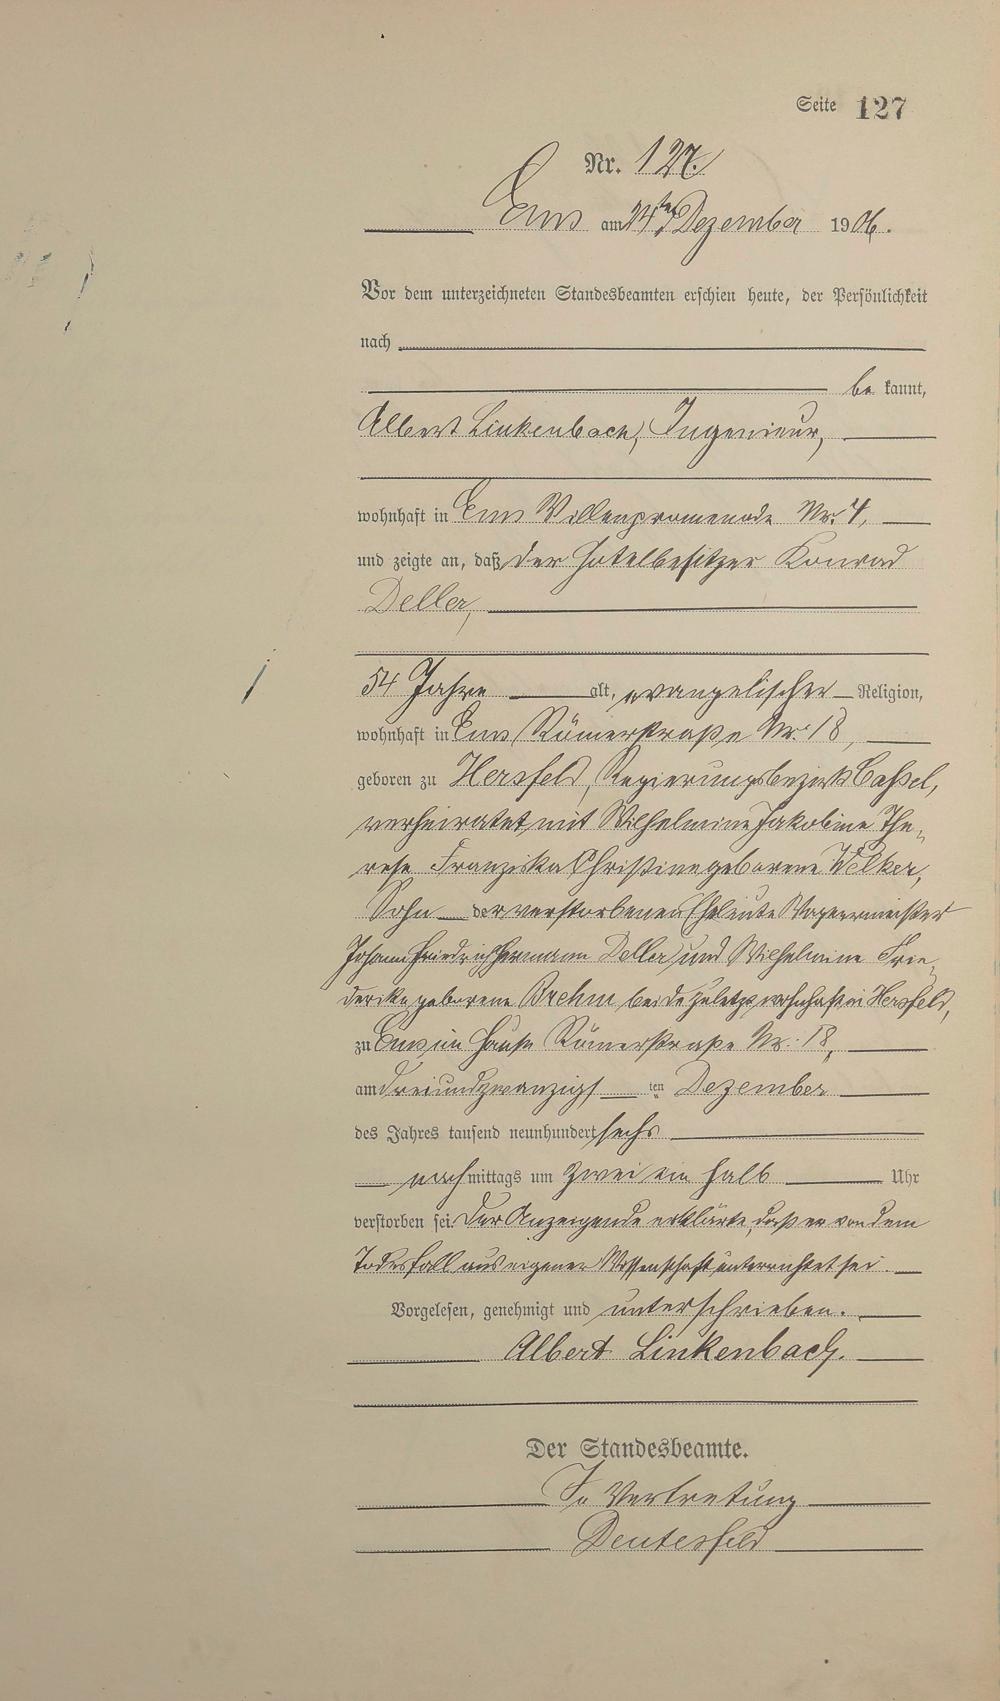 Seite 127
Nr. 127.
Ems am 24ten Dezember 1906.
Vor dem unterzeichneten Standesbeamten erschien heute, der Persönlichkeit
nach
be kannt,
Albert Linkenbach, Ingenieur,
wohnhaft in Ems Villenpromenade Nr. 4,
und zeigte an, daß der Hotelbesitzer Konrad
Deller,
54 Jahre alt, evangelischer Religion,
wohnhaft in Ems, Römerstraße Nr. 18,
geboren zu Hersfeld, Regierungsbezirk Cassel,
verheiratet mit Wilhelmine Jakobine The-
rese Franziska Christine geborene Velker,
Sohn der verstorbenen Eheleute
Johann Friedrich Hermann Deller und Wilhelmine Frie-
derike geborene Brehm, beide zuletzt wohnhaft in Hersfeld,
zu Ems im Hause Römerstraße Nr. 18,
am dreiundzwanzigsten Dezember
des Jahres tausend neunhundert sechs
nachmittags um zwei ein halb Uhr
verstorben sei. Der Anzeigende erklärte, daß er von dem
Todesfall aus eigener Wissenschaft unterrichtet sei.
Vorgelesen, genehmigt und unterschrieben.
Albert Linkenbach.
Der Standesbeamte.
In Vertretung